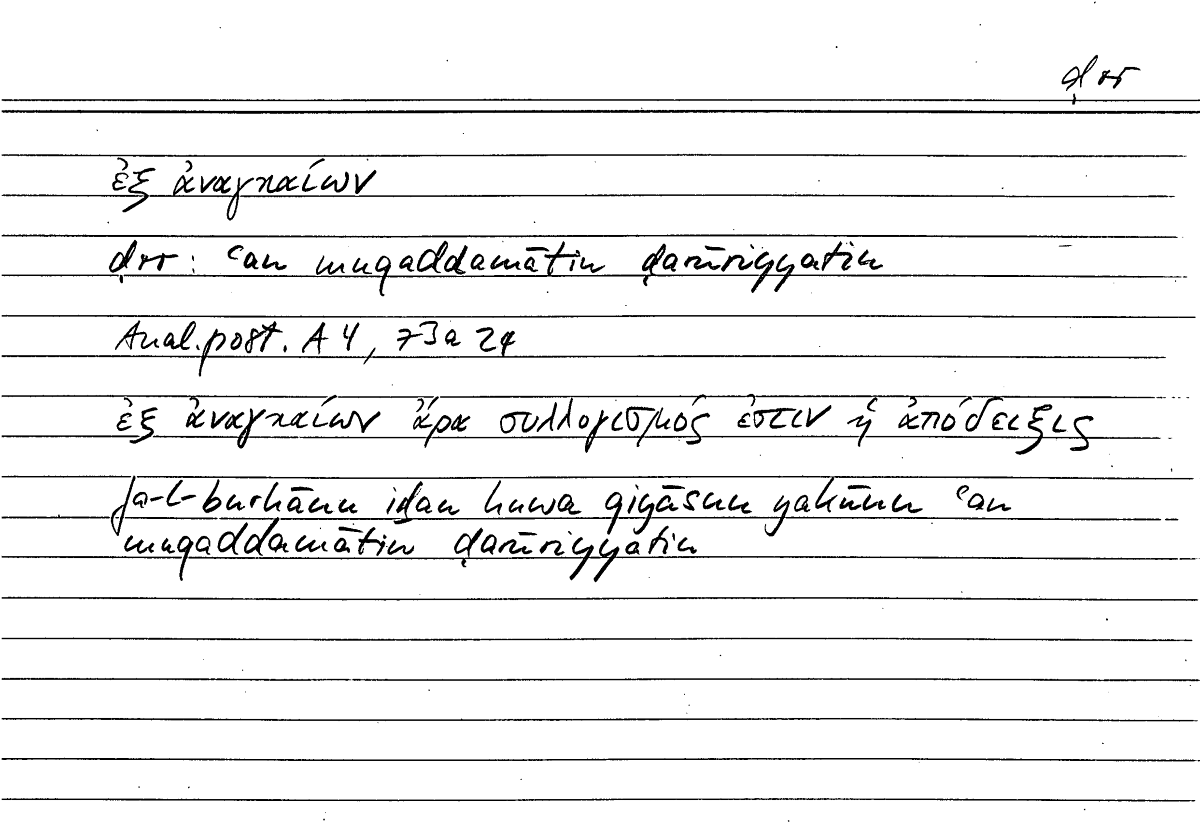 ḍrr
ἐξ ἀναγκαίων
ḍrr: ʿan muqaddamātin ḍarūriyyatin
Anal. post. A 4, 73a 24
ἐξ ἀναγκαίων ἄρα συλλογισμός ἐστιν ἡ ἀπόδειξις
fa-l-burhānu iḏan huwa qiyāsun yakūnu ʿan
muqaddamātin ḍarūriyyatin